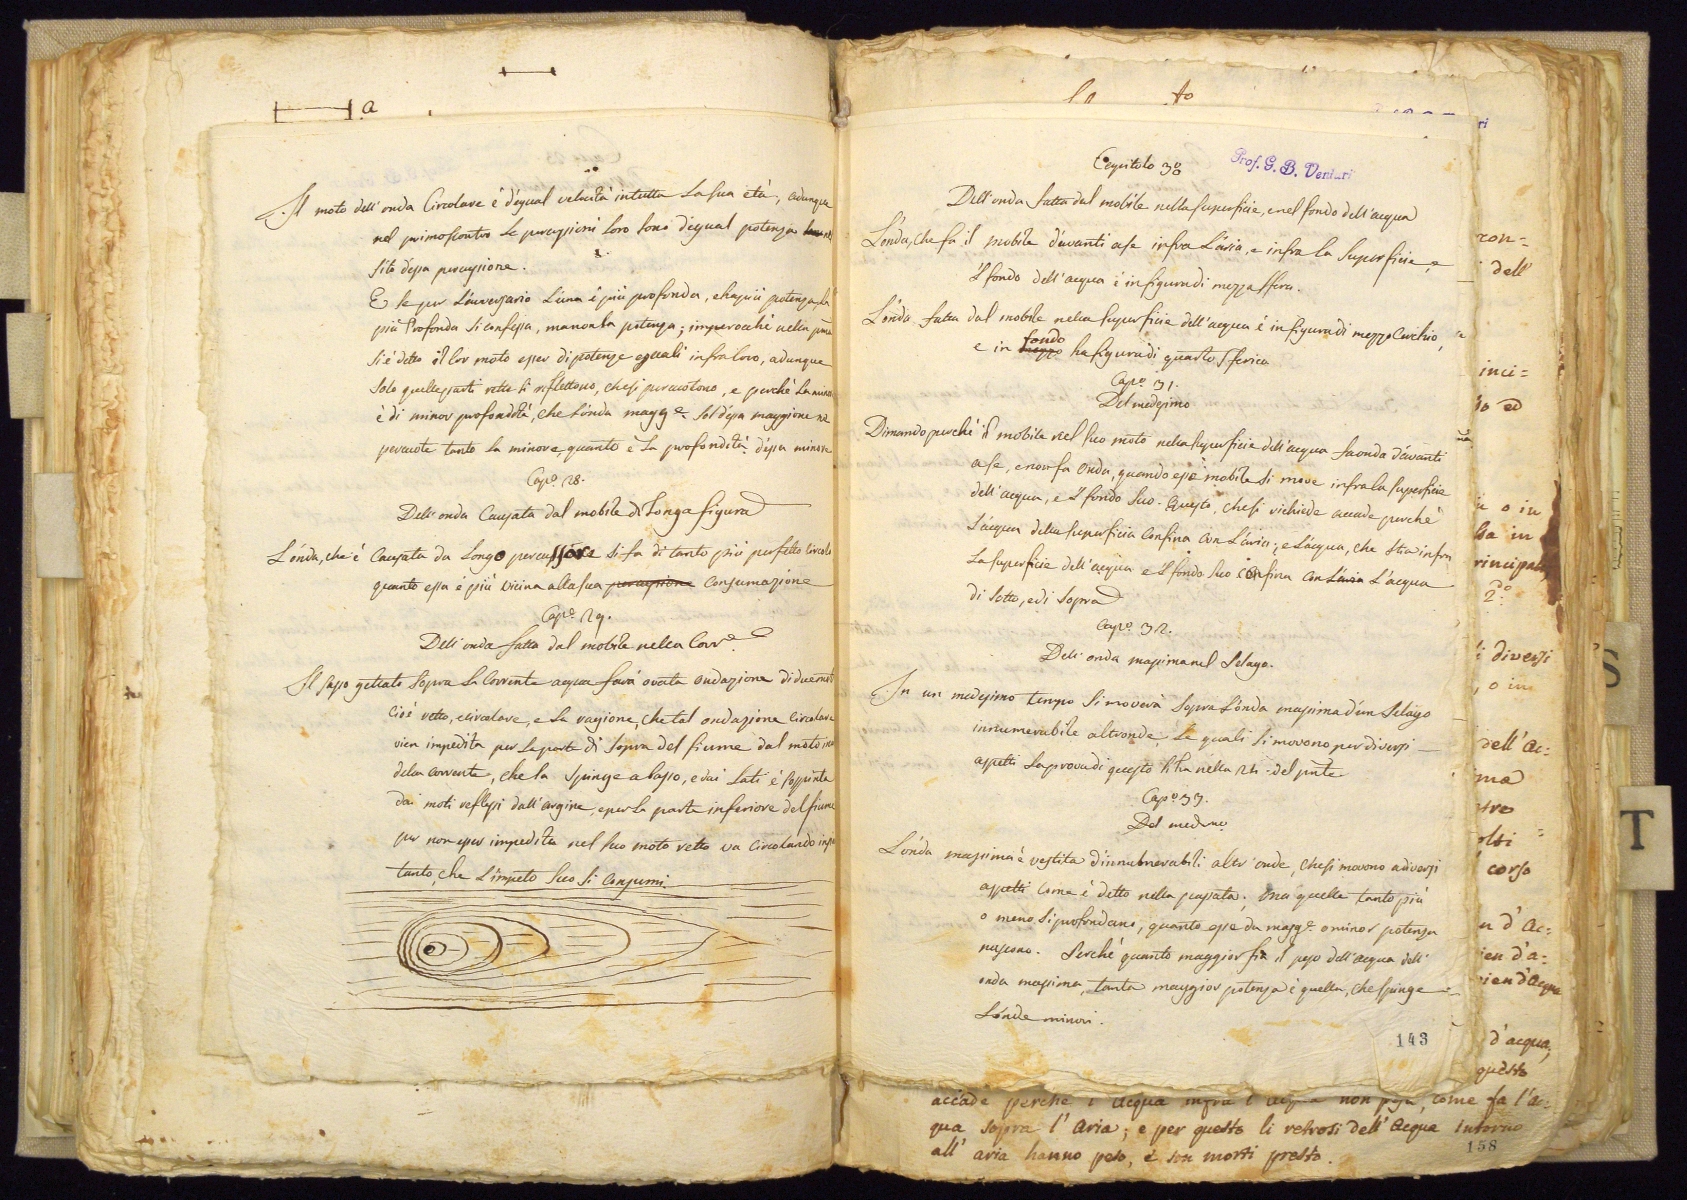 a
Il moto dell'onda Circolare è d'egual velocità in tutta la sua età, adunque
nel primo scontro le percussioni loro sono d'egual potenza
sito d'essa percussione.
E se per l'avversario l'una è più profonda, e ha più potenza, la
più profonda si confessa, ma non la potenza; imperocchè nella
si è detto il lor moto esser di potenze eguali infra loro, adunque
solo quelle parti rette si riflettono, che si percuotono, e perchè la minor
è di minor profondità, che l'onda magg.e sol d'essa maggiore ne
percuote tanto la minore, quanto è la profondità d'essa minore
Cap.o 28.
Dell'onda Causata dal mobile di Longa figura
L'onda, che è Causata da Longo percussore si fa di tanto più perfetto Circolo
quanto essa è più vicina alla sua percussione Consumazione
Cap.o 29.
Dell'onda fatta dal mobile nella Corr.e
Il sasso gettato sopra la Corrente acqua farà ovata ondazione di due moti
cioè retto, e circolare, e la ragione, che tal ondazione Circolare
vien impedita per la parte di sopra del fiume dal moto
della corrente, che la spinge a basso, e dai lati è sospinta
dai moti reflessi dall'argine, e per la parte inferiore del fiume
per non esser impedita nel suo moto retto va Circolando
tanto, che l'impeto suo si Consumi.
Capitolo 30
Prof. G. B. Venturi
Dell'onda fatta dal mobile nella superficie, e nel fondo dell'acqua
L'onda, che fa il mobile d'avanti a se infra l'aria, e infra la superficie, e
il fondo dell'acqua è in figura di mezza sfera.
L'onda fatta dal mobile nella superficie dell'acqua è in figura di mezzo Cerchio,
e in mezzo fondo ha figura di quarto sferico
Cap.o 31.
Del medesimo
Dimando perchè il mobile nel suo moto nella superficie dell'acqua fa onda d'avanti
a se, e non fa onda, quando esso mobile si move infra la superficie
dell'acqua, e il fondo suo. Questo, che si richiede accade perchè
l'acqua della superficie Confina con l'aria; e l'acqua, che sta infra
la superficie dell'acqua e il fondo suo Confina con l'aria l'acqua
di sotto, e di sopra
Cap.o 32.
Dell'onda massima nel Pelago.
In un medesimo tempo si moverà sopra l'onda massima d'un Pelago
innumerabile altr'onde, le quali si movono per diversi
aspetti la prova di questo si ha nella 24 del pnte
Cap.o 33.
Del medmo
L'onda massima è vestita d'innumerabili altr'onde, che si movono a diversi
aspetti Come è detto nella passata; ma quelle tanto più
o meno si profondano, quanto esse da magg.e o minor potenza
nascono. Perchè quanto maggior fia il peso dell'acqua dell'
onda massima, tanta maggior potenza è quella, che spinge
l'onde minori.
143
ron=
dell'
inci=
o in
rincipa
2.o
diversi
, o in
dell'ac=
corso
d'ac=
d'a=
d'acqua
d'acqua,
questo
accade perche l'acqua infra l'acqua non pesa, come fa l'a=
qua sopra l'aria; e per questo li retrosi dell'acqua intorno
all'aria hanno peso, e son morti presto.
158
S
T